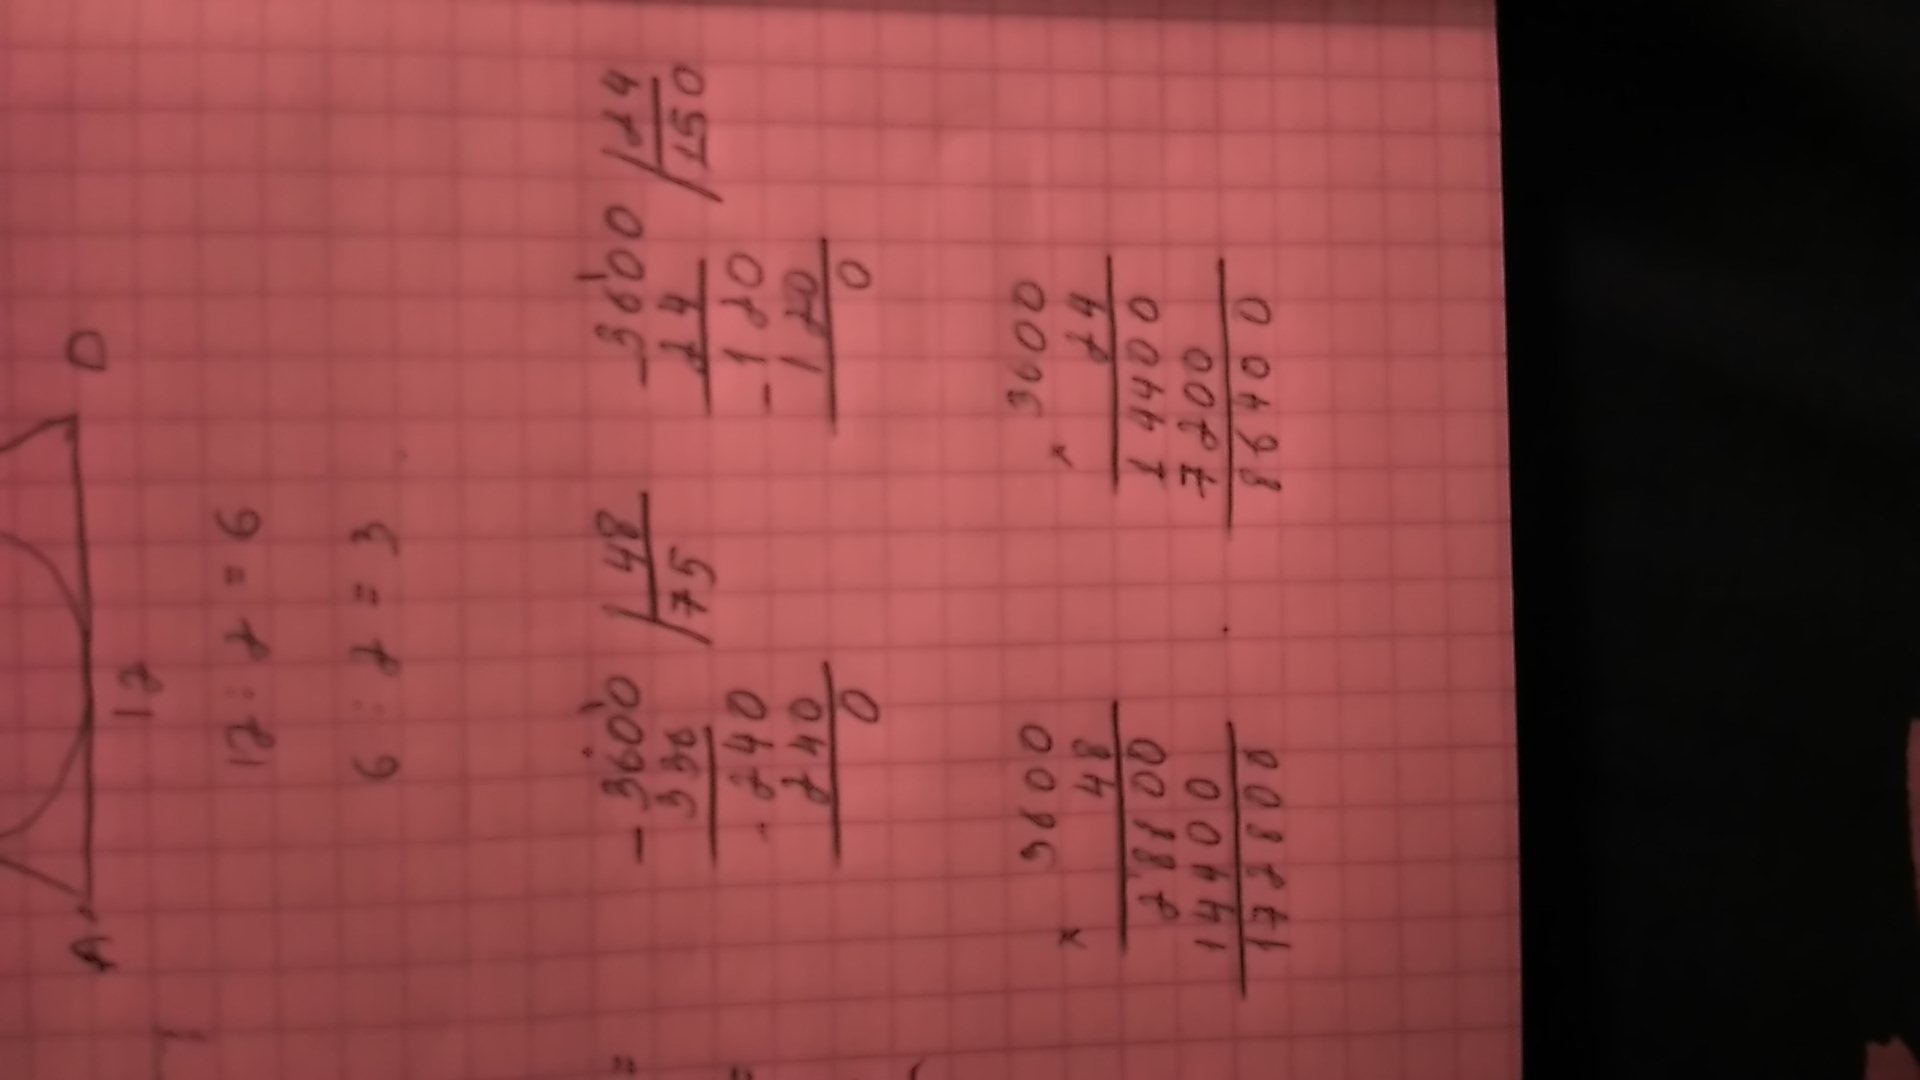 A D
12
12 : 2 = 6
6 : 2 = 3
-3600 | 48 -3600 | 24
336 75 24 150
- 240 - 120
240 120
0 0
3600 3600
x 48 x 24
28800 14400
14400 7200
172800 86400